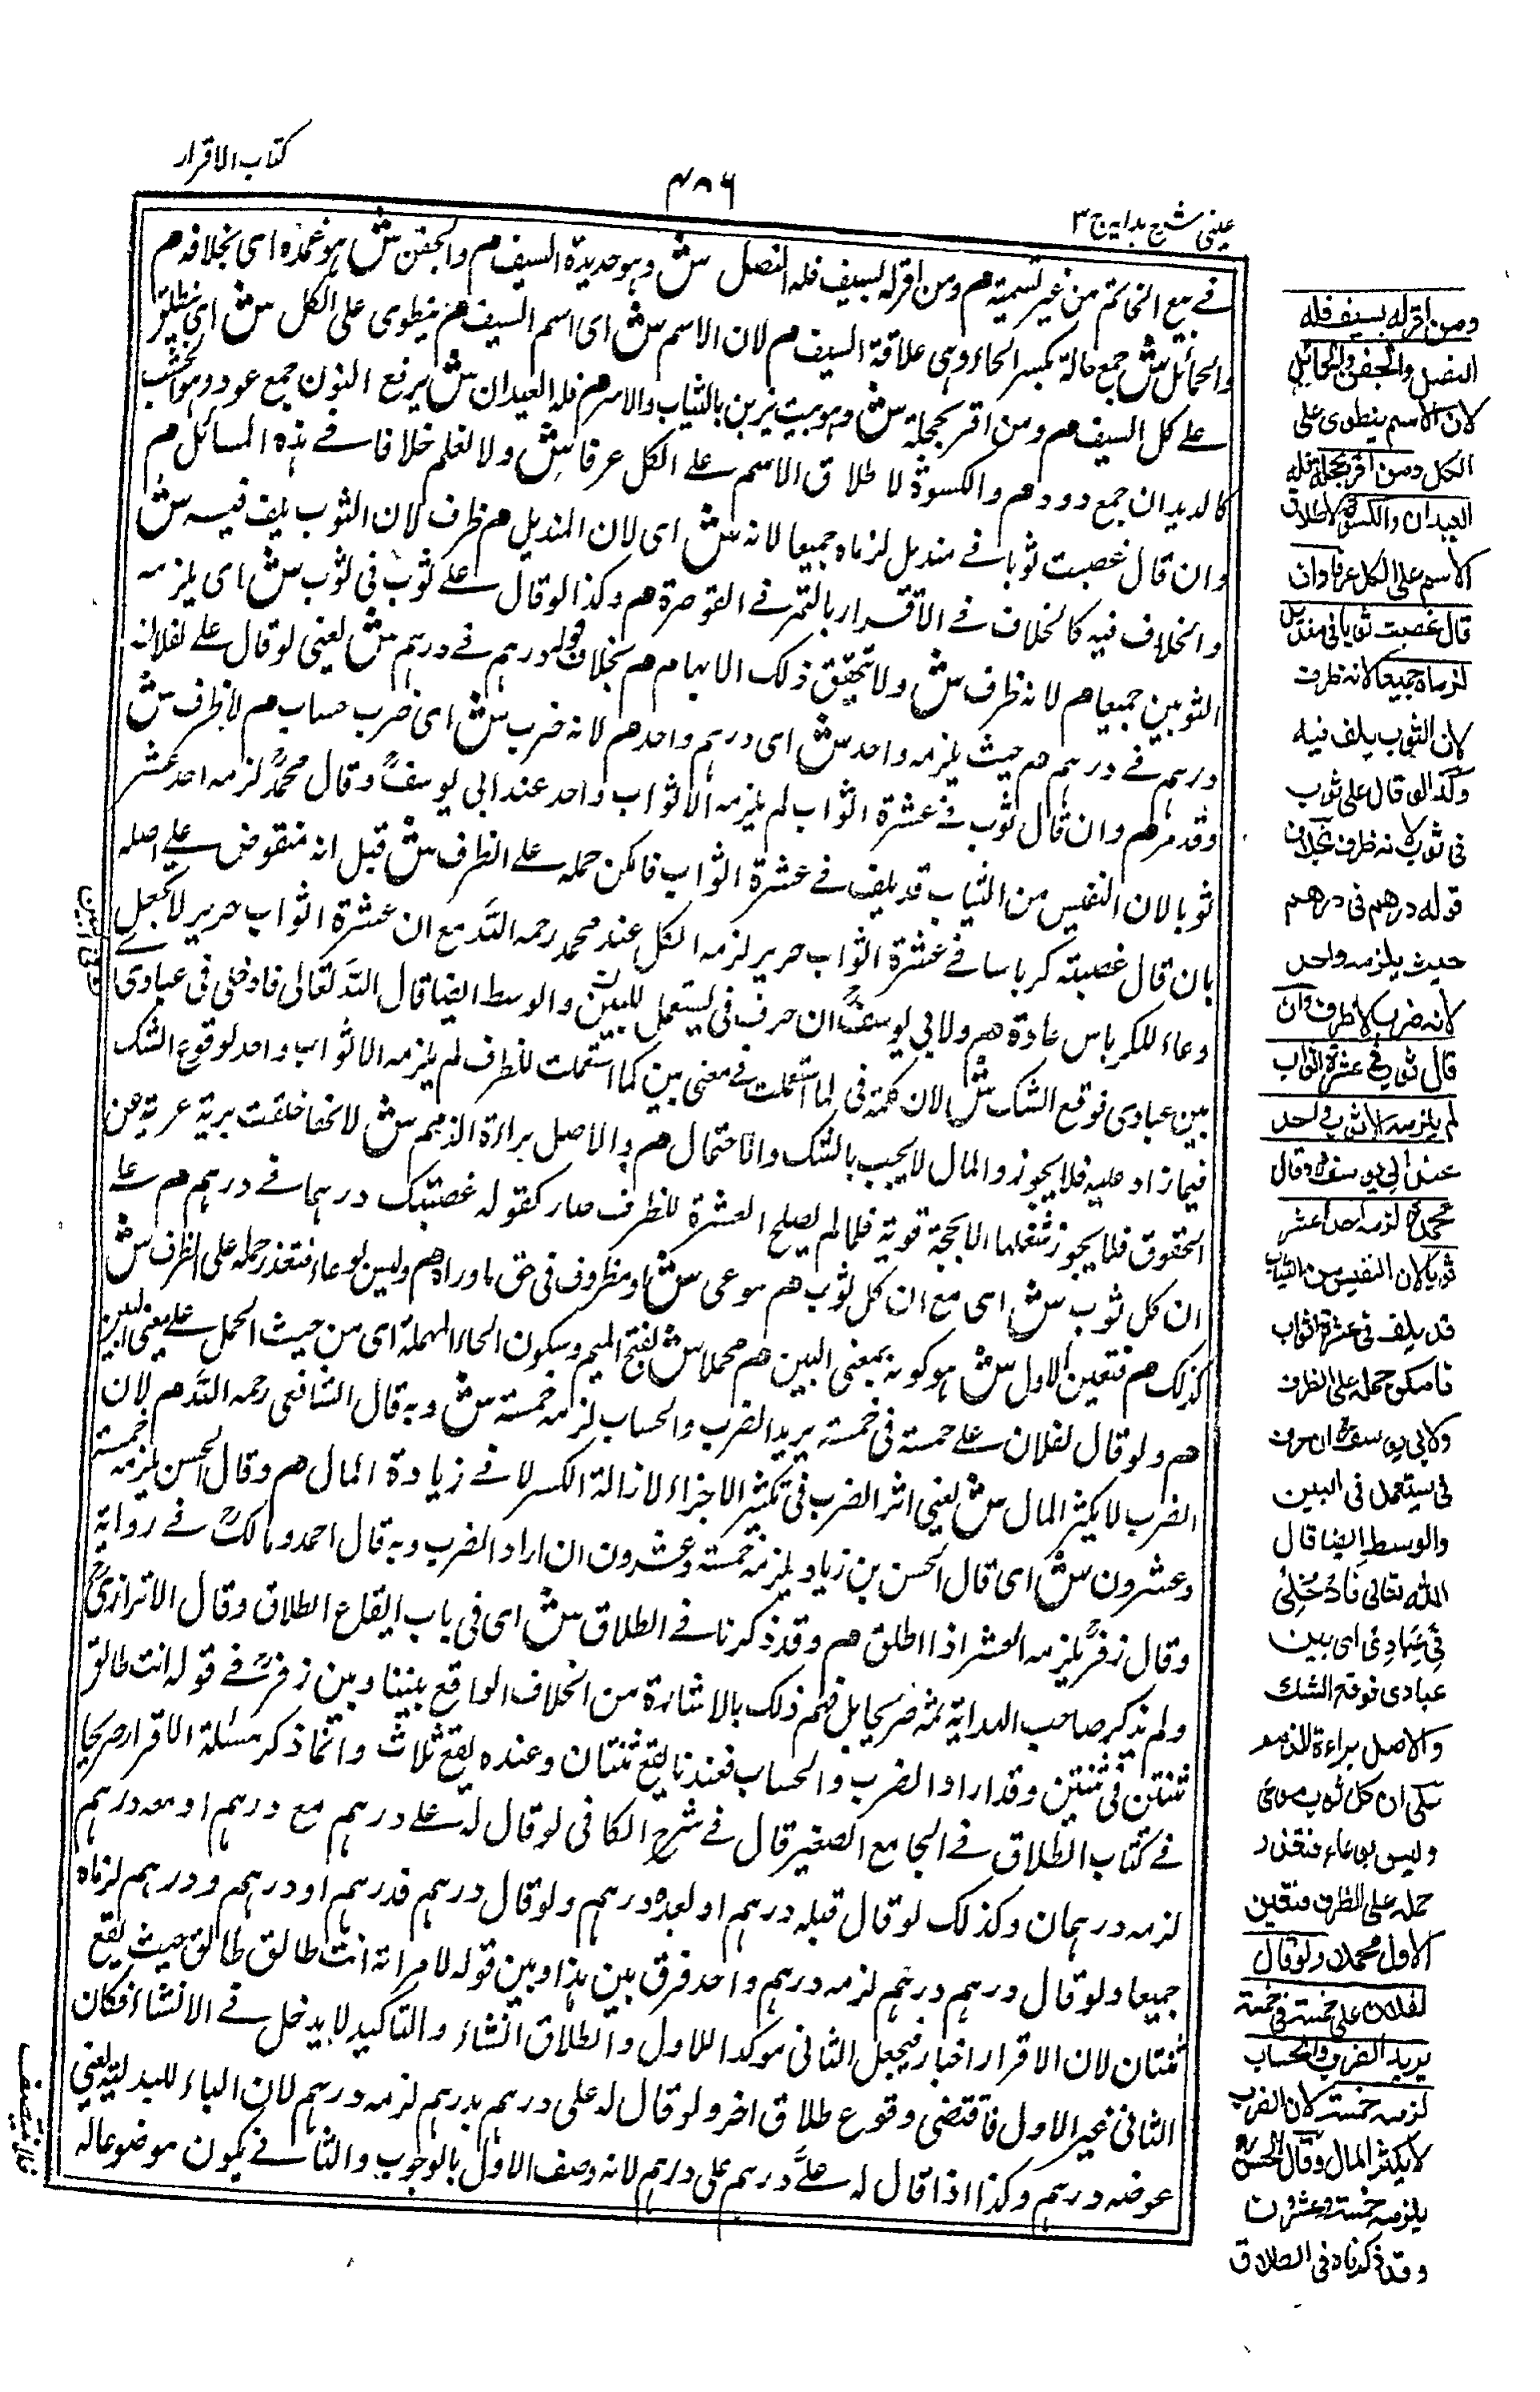 كتاب الاقرار
٤٨٦
عينى شرح هدايه ج ٣
فے بيع الخاتم من غير تسمية هم ومن اقر له بسيف فله النصل ش وهو حديدة السيف م والجفن ش هو غمده اى بخلافه م
والحمائل ش جمع حمالة بكسر الحاء وهى علاقة السيف م لان الاسم ش اى اسم السيف م ينطوى على الكل ش اى ينطلق
علے كل السيف هم ومن اقر بحجلة ش وهو بيت يزين بالثياب والاسرة م فله العيدان ش برفع النون جمع عود وهو الخشب
كالديدان جمع دود هم والكسوة لاطلاق الاسم علے الكل عرفا ش ولا نعلم خلافا فے هذه المسائل م
وان قال غصبت ثوبا فے منديل لزماه جميعا لانه ش اى لان المنديل م ظرف لان الثوب يلف فيه ش
والخلاف فيه كالخلاف فے الاقرار بالتمر فے القوصرة هم وكذا لو قال علے ثوب فى ثوب ش اى يلزمه
الثوبين جميعا هم لانه ظرف ش ولا تحقق ذلك الابهام م بخلاف قوله درهم فے درهم ش يعنى لو قال علے لفلان
درهم فے درهم هم حيث يلزمه واحد ش اى درهم واحد هم لانه ضرب ش اى ضرب حساب هم لا ظرف ش
وقد مر هم وان قال ثوب فے عشرة اثواب لم يلزمه الا ثواب واحد عند ابى يوسف وقال محمد لزمه احد عشر
ثوبا لان النفيس من الثياب قد يلف فے عشرة اثواب فامكن حمله علے الظرف ش قيل انه منقوض علے اصله
بان قال غصبته كرباسا فے عشرة اثواب حرير لزمه الكل عند محمد رحمه الله مع ان عشرة اثواب حرير لا تجعل
وعاء للكرباس عادة هم ولابى يوسف ان حرف فى يستعمل للبين والوسط ايضا قال الله تعالى فادخلى فى عبادى اے
بين عبادى فوقع الشك ش لان كلمة فى لما استعملت فے معنى بين كما استعملت للظرف لم يلزمه الا ثواب واحد لوقوع الشك
فيما زاد عليه فلا يجوز والمال لا يجب بالشك والاحتمال هم والاصل براءة الذمم ش لانها خلقت برية عرية عن
الحقوق فلا يجوز شغلها الا بحجة قوية فلما لم يصلح العشرة للظرف صار كقوله غصبتك درهما فے درهم هم علے
ان كل ثوب ش اى مع ان كل ثوب هم موعى ش او مظروف فى حق ما وراه هم وليس بوعاء فتعذر حمله على الظرف ش
كذلك هم فتعين الاول ش هو كونه بمعنى البين هم محملا ش بفتح الميم وسكون الحاء المهملة اى من حيث الحمل علے معنى البين
هم ولو قال لفلان علے خمسة فى خمسة يريد الضرب والحساب لزمه خمسة ش وبه قال الشافعى رحمه الله هم لان
الضرب لا يكثر المال ش يعنى اثر الضرب فى تكثير الاجزاء لازالة الكسر لا فے زيادة المال هم وقال الحسن يلزمه خمسة
وعشرون ش اى قال الحسن بن زياد يلزمه خمسة وعشرون ان اراد الضرب وبه قال احمد ومالك فے رواية
وقال زفر يلزمه العشر اذا اطلق هم وقد ذكرنا فے الطلاق ش اى فى باب ايقاع الطلاق وقال الاترازى
ولم يذكر صاحب الهداية ثمه صريحا بل فهم ذلك بالاشارة من الخلاف الواقع بيننا وبين زفر فے قوله انت طالق
ثنتين فى ثنتين وقد اراد الضرب والحساب فعندنا يقع ثنتان وعنده يقع ثلاث وانما ذكر مسئلة الاقرار صريحا
فے كتاب الطلاق فے الجامع الصغير قال فے شرح الكافى لو قال له علے درهم مع درهم او معه درهم
لزمه درهمان وكذلك لو قال قبله درهم او بعده درهم ولو قال درهم فدرهم او درهم ودرهم لزماه
جميعا ولو قال درهم درهم لزمه درهم واحد فرق بين هذا وبين قوله لامراته انت طالق طالق حيث يقع
ثنتان لان الاقرار اخبار فيجعل الثانى موكدا للاول والطلاق انشاء والتاكيد لا يدخل فے الانشاء فكان
الثانى غير الاول فاقتضى وقوع طلاق اخر ولو قال له على درهم بدرهم لزمه درهم لان الباء للبدلية يعنى
عوضه درهم وكذا اذا قال له علے درهم على درهم لانه وصف الاول بالوجوب والثانے يكون موضوعا له
ومن اقر له بسيف فله
النصل والجفن والحمائل
لان الاسم ينطوى على
الكل ومن اقر بحجلة فله
العيدان والكسوة لاطلاق
الاسم على الكل عرفا وان
قال غصبت ثوبا فى منديل
لزماه جميعا لانه ظرف
لان الثوب يلف فيه
وكذا لو قال على ثوب
فى ثوب لانه ظرف بخلاف
قوله درهم فى درهم
حيث يلزمه واحد
لانه ضرب لا ظرف وان
قال ثوب فى عشرة اثواب
لم يلزمه الا ثوب واحد
عند ابى يوسف وقال
محمد لزمه احد عشر
ثوبا لان النفيس من الثياب
قد يلف فى عشرة اثواب
فامكن حمله على الظرف
ولابى يوسف ان حرف
فى يستعمل فى البين
والوسط ايضا قال
الله تعالى فَادْخُلِىْ
فِىْ عِبَادِىْ اى بين
عبادى فوقع الشك
والاصل براءة الذمم
على ان كل ثوب موعى
وليس بوعاء فتعذر
حمله على الظرف فتعين
الاول محملا ولو قال
لفلان على خمسة فى خمسة
يريد الضرب والحساب
لزمه خمسة لان الضرب
لا يكثر المال وقال الحسن
يلزمه خمسة وعشرون
وقد ذكرناه فى الطلاق